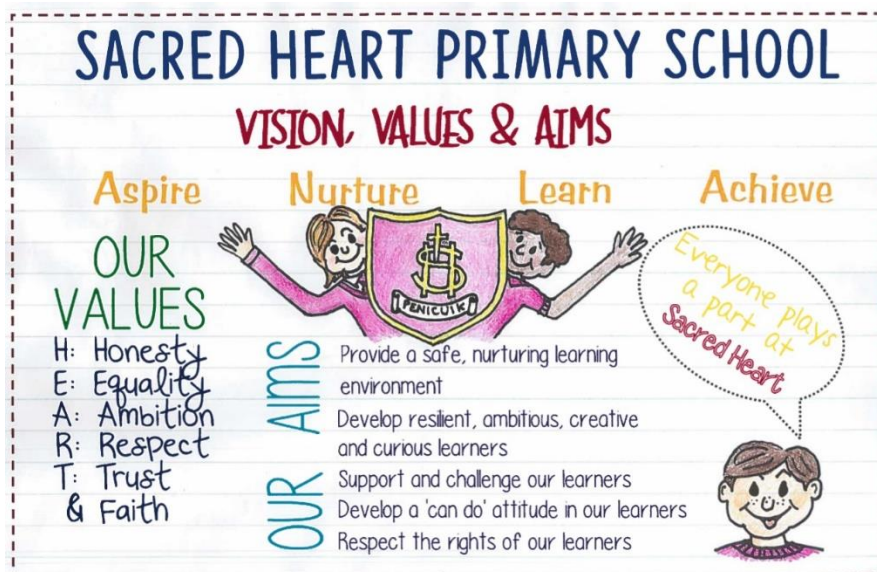 SACRED HEART PRIMARY SCHOOL
VISION, VALUES & AIMS
Aspire Nurture Learn Achieve
OUR
VALUES
H: Honesty
E: Equality
A: Ambition
R: Respect
T: Trust
& Faith
SH
PENICUIK
OUR AIMS
Provide a safe, nurturing learning
environment
Develop resilient, ambitious, creative
and curious learners
Support and challenge our learners
Develop a 'can do' attitude in our learners
Respect the rights of our learners
Everyone plays
a part
at
Sacred Heart